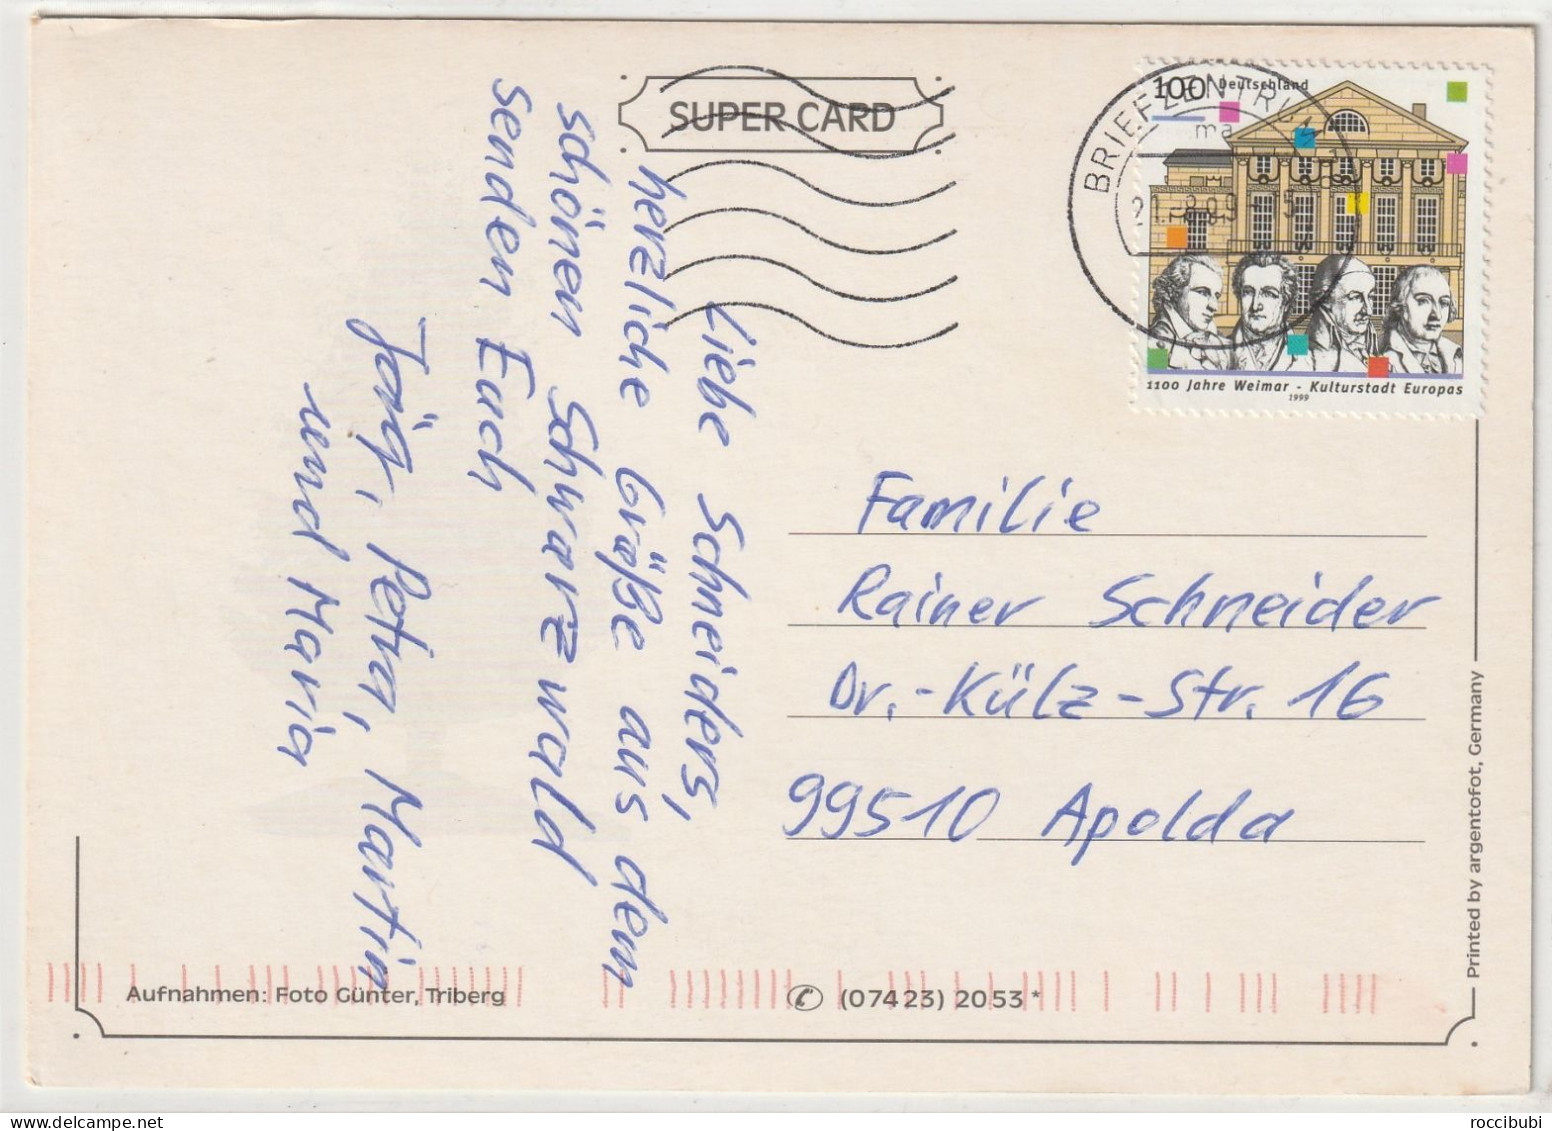 SUPER CARD
Liebe Schneiders,
herzliche Grüße aus dem
schönen Schwarzwald
senden Euch
Jörg, Petra, Martin
und Maria
100 Deutschland
1100 Jahre Weimar - Kulturstadt Europas
1999
BRIEFZENTRUM
Familie
Rainer Schneider
Dr.-Külz-Str. 16
99510 Apolda
Printed by argentofot, Germany
Aufnahmen: Foto Günter, Triberg
(07423) 2053*
roccibubi